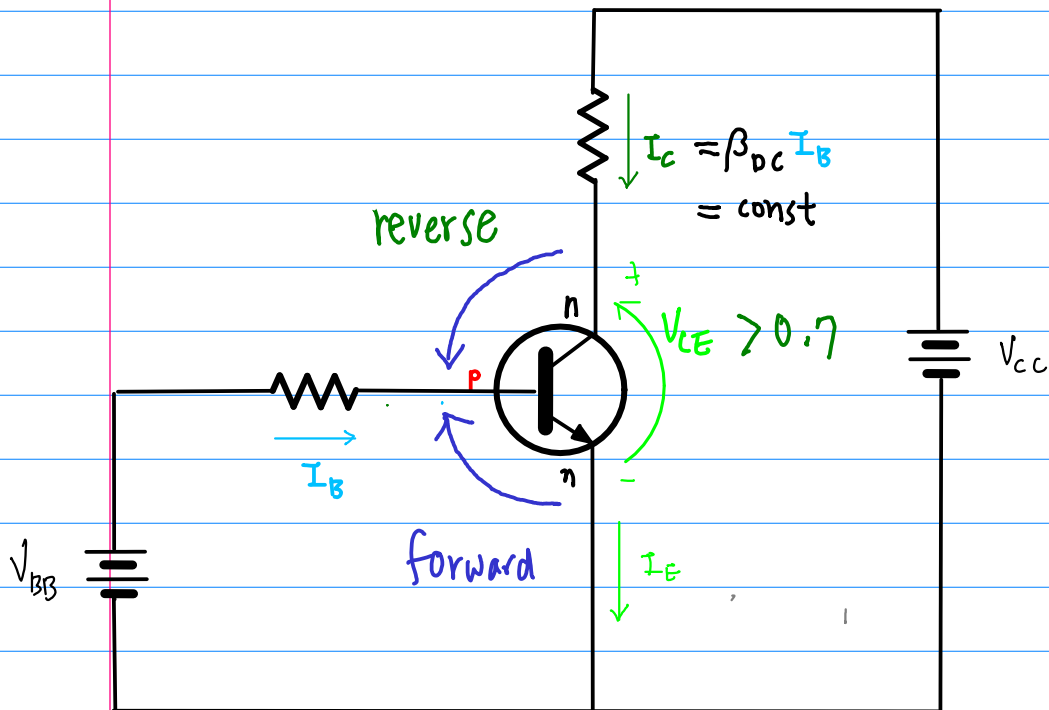 I_C = β_DC I_B
= const
reverse
+
n
V_CE > 0.7
V_CC
p
I_B
n
−
forward
V_BB
I_E